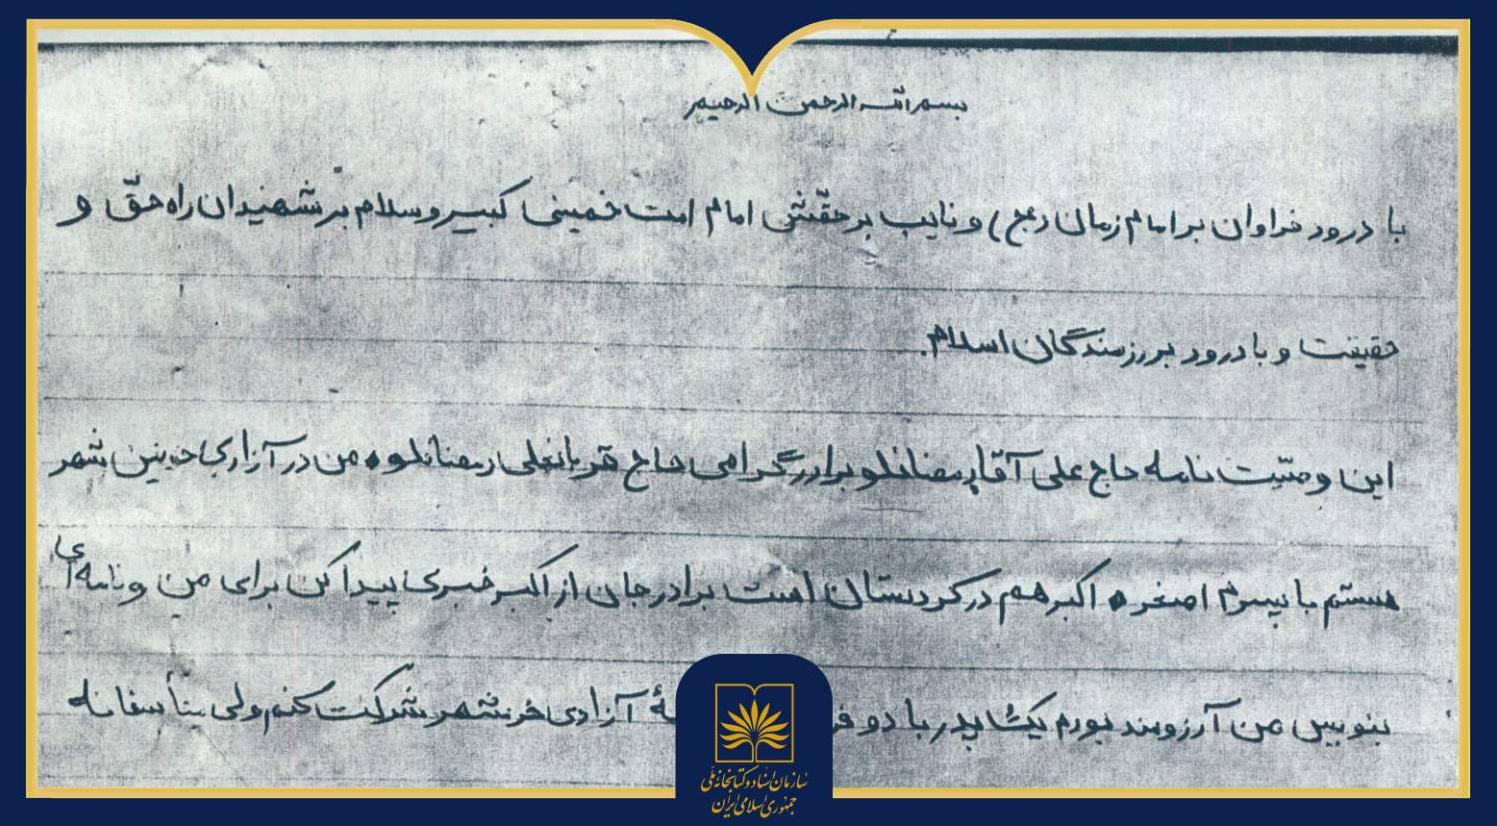 بسم الله الرحمن الرحیم
با درود فراوان بر امام زمان (عج) و نایب بر حقّش امام امت خمینی کبیر و سلام بر شهیدان راه حقّ و
حقیقت و با درود بر رزمندگان اسلام.
این وصیّت نامه حاج علی آقا رمضانلو برادر گرامی حاج قربانعلی رمضانلو من در آزادی خونین شهر
هستم با پسرم اصغر اکبر هم در کردستان است برادر جان از اکبر خبری پیدا کن برای من و نامه‌ای
بنویس من آرزومند بودم یک پدر با دو آزادی خرمشهر شرکت کنم ولی متأسفانه
سازمان اسناد و کتابخانه ملی
جمهوری اسلامی ایران